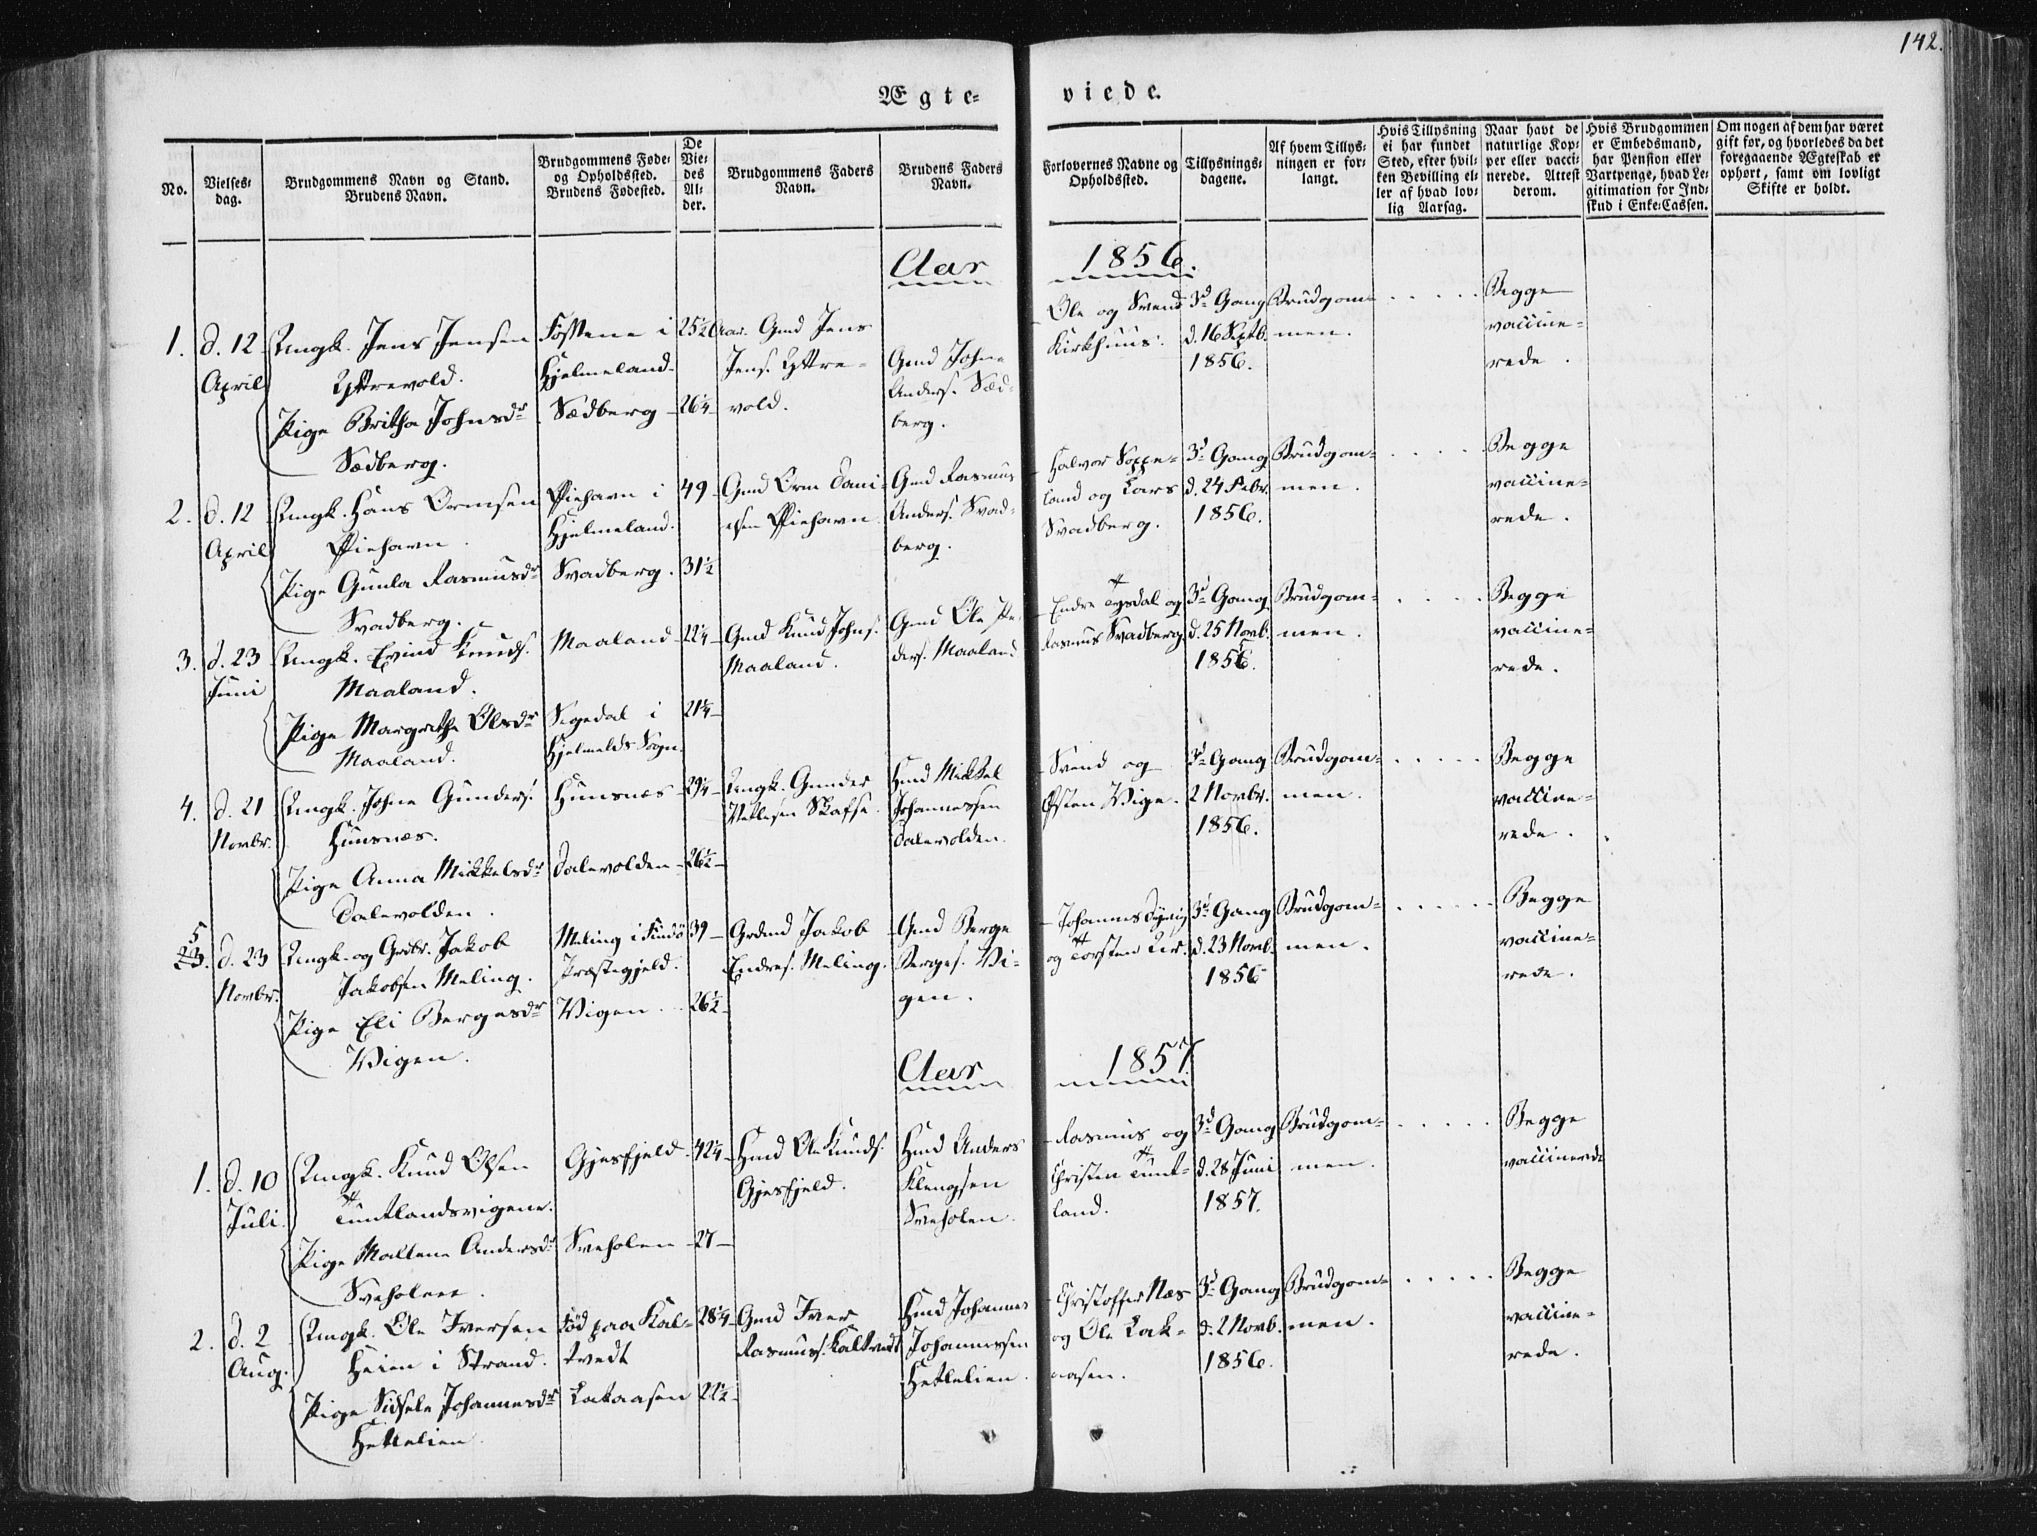 142.
Ægte- viede.
No.
Vielses-
dag.
Brudgommens Navn og Stand.
Brudens Navn.
Brudgommens Føde-
og Opholdssted.
Brudens Fødested.
De
Vie-
des
Al-
der.
Brudgommens Faders
Navn.
Brudens Faders
Navn.
Forlovernes Navne og
Opholdssted.
Tillysnings-
dagene.
Af hvem Tillys-
ningen er for-
langt.
Hvis Tillysning
ei har fundet
Sted, efter hvil-
ken Bevilling el-
ler af hvad lov-
lig Aarsag.
Naar havt de
naturlige Kop-
per eller vacci-
nerede. Attest
derom.
Hvis Brudgommen
er Embedsmand,
har Pension eller
Vartpenge, hvad Le-
gitimation for Ind-
skud i Enke-Cassen.
Om nogen af dem har været
gift før, og hvorledes da det
foregaaende Ægteskab er
ophørt, samt om lovligt
Skifte er holdt.
Aar 1856.
1.
d. 12
April
Ungk. Jens Jensen
Yttrevold.
Pige Britha Johnsdr
Sædberg.
i
Hjelmeland.
Sædberg
25½ Aar.
26¼
Gmd Jens
Jens. Yttre-
vold.
Gmd John
Anders. Sæd-
berg.
Ole og Svend
Kirkhuus.
3d Gang
d. 16 Septb.
1856.
Brudgom-
men.
Begge
vaccine-
rede.
2.
d. 12
April
Ungk. Hans Ormsen
Piehavn.
Pige Gunla Rasmusdr
Svadberg.
Piehavn i
Hjelmeland.
Svadberg.
49
31½
Gmd Orm Dani-
elsen Piehavn.
Gmd Rasmus
Anders. Svad-
berg.
Halvor Soppe-
land og Lars
Svadberg.
3d Gang
d. 24 Febr.
1856.
Brudgom-
men.
Begge
vaccine-
rede.
3.
d. 23
Juni
Ungk. Evind Knuds.
Maaland.
Pige Margrethe Olsdr
Maaland.
Maaland
Segedal i
Hjelmelds Sogn
22¼
21¼
Gmd Knud Johns.
Maaland.
Gmd Ole Pe-
ders. Maaland
Endre Tysdal og
Rasmus Svadberg.
3d Gang
d. 25 Novb.
Brudgom-
men.
Begge
vaccine-
rede.
4.
d. 21
Novbr.
Ungk. John Gunders.
Hunsnæs.
Pige Anna Mickkelsdr
Dalevolden.
Hunsnæs
Dalevolden
29¼
26½
Ungk. Gunder
Skafse
Hmd Mickkel
Johannessen
Dalevolden.
Svend og
Østen Vige.
3d Gang
2 Novbr.
1856.
Brudgom-
men.
Begge
vaccine-
rede.
5
d. 23
Novbr.
Ungk. og Grdbr. Jakob
Jakobsen Meling.
Pige Eli Bergesdr
Vigen.
Meling i Findø
Præstegjeld.
Vigen
39
26½
Grdmd Jakob
Endres. Meling.
Gmd Berge
Berges. Vi-
gen.
Johannes
og Torsten
3d Gang
d. 23 Novb.
1856
Brudgom-
men.
Begge
vaccine-
rede.
Aar 1857
1.
d. 10
Juli.
Ungk. Knud Olsen
Tuntlandsvigene.
Pige Mallene Andersdr
Sveholen.
Gjesfjeld
Sveholen
42¼
27
Hmd Ole Knuds.
Gjesfjeld.
Hmd Anders
Klengsen
Sveholen.
Rasmus og
Christen Tunt-
land.
3d Gang
d. 28 Juni
1857.
Brudgom-
men.
Begge
vaccinerede
2.
d. 2
Aug.
Ungk. Ole Iversen
Heien i Strand.
Pige Sidsele Johannesdr
Hetlelien.
Fød paa Kal-
tvedt
Lakaasen
28¼
22½
Gmd Iver
Rasmuss. Kaltvedt
Hmd Johannes
Johannessen
Hetlelien.
Christoffer Næs
og Ole Lak-
aasen.
3d Gang
d. 2 Novb.
1856.
Brudgom-
men.
Begge
vaccine-
rede.